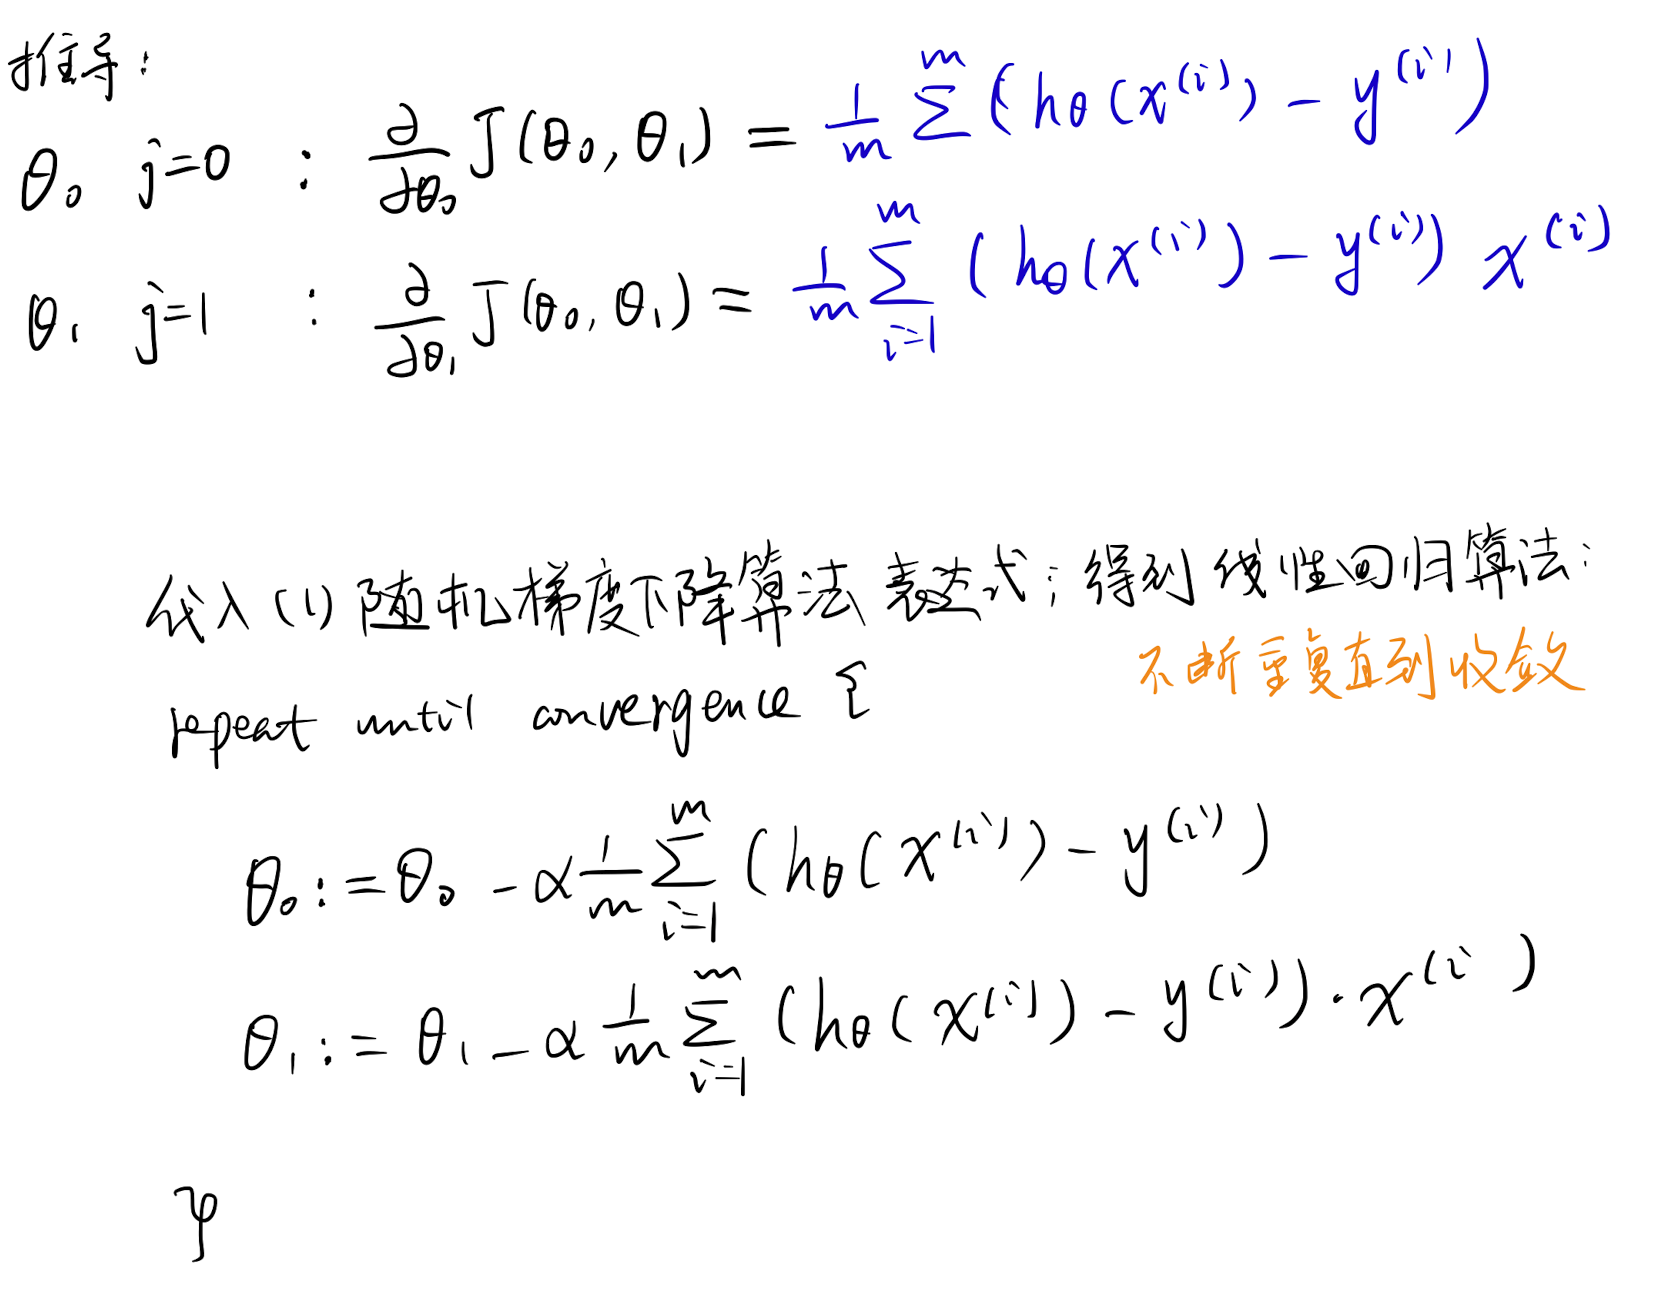 推导：
θ₀ j=0 : ∂/∂θ₀ J(θ₀,θ₁) = 1/m Σ^m (hθ(x^(i)) - y^(i))
θ₁ j=1 : ∂/∂θ₁ J(θ₀,θ₁) = 1/m Σ_{i=1}^m (hθ(x^(i)) - y^(i)) x^(i)
代入(1)随机梯度下降算法表达式；得到线性回归算法：
不断重复直到收敛
repeat until convergence {
θ₀ := θ₀ - α 1/m Σ_{i=1}^m (hθ(x^(i)) - y^(i))
θ₁ := θ₁ - α 1/m Σ_{i=1}^m (hθ(x^(i)) - y^(i)) · x^(i)